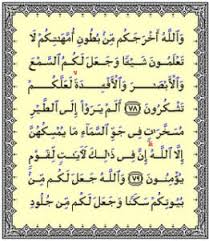 وَٱللَّهُ أَخْرَجَكُم مِّنۢ بُطُونِ أُمَّهَٰتِكُمْ لَا
تَعْلَمُونَ شَيْـًٔا وَجَعَلَ لَكُمُ ٱلسَّمْعَ
وَٱلْأَبْصَٰرَ وَٱلْأَفْـِٔدَةَ ۙ لَعَلَّكُمْ
تَشْكُرُونَ ٧٨ أَلَمْ يَرَوْا۟ إِلَى ٱلطَّيْرِ
مُسَخَّرَٰتٍ فِى جَوِّ ٱلسَّمَآءِ مَا يُمْسِكُهُنَّ
إِلَّا ٱللَّهُ ۗ إِنَّ فِى ذَٰلِكَ لَءَايَٰتٍ لِّقَوْمٍ
يُؤْمِنُونَ ٧٩ وَٱللَّهُ جَعَلَ لَكُم مِّنۢ
بُيُوتِكُمْ سَكَنًا وَجَعَلَ لَكُم مِّن جُلُودِ